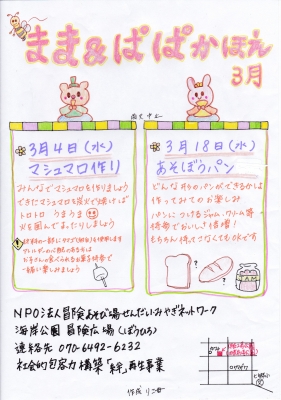 まま&ぱぱかほえん
3月
雨天中止
3月4日(水)
マシュマロ作り
みんなでマシュマロを作りましょう
できたマシュマロを炭火で焼けば
トロトロ うまうま
火を囲んでまったりしましょう
一緒に楽しみましょう
3月18日(水)
あそぼうパン
どんな形のパンができるかは
作ってみてのお楽しみ
パンにつけるジャム・クリーム等
持参でおいしさ倍増!
もちろん持ってこなくてもOKです
NPO法人冒険あそび場せんだい・みやぎネットワーク
海岸公園 冒険広場(ぼうひろ)
連絡先 070-6492-6232
社会的包容力構築「絆」再生事業